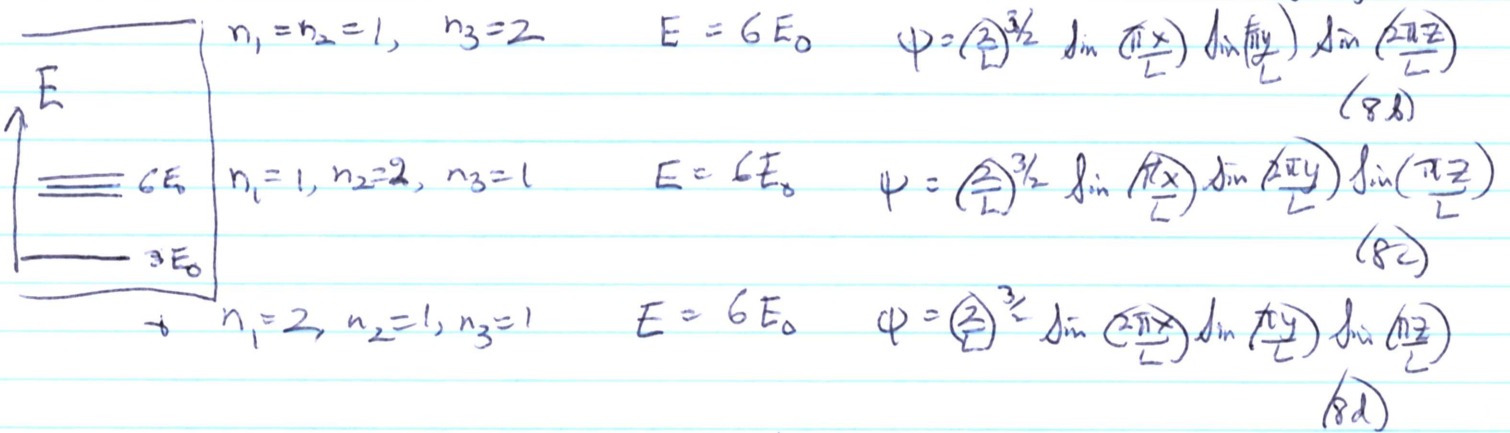 n₁=n₂=1, n₃=2 E = 6E₀ ψ=(2/L)^3/2 sin (πx/L) sin(πy/L) sin (2πz/L)
(8b)
E
6E₀ n₁=1, n₂=2, n₃=1 E = 6E₀ ψ = (2/L)^3/2 sin (πx/L) sin (2πy/L) sin(πz/L)
(8c)
3E₀
n₁=2, n₂=1, n₃=1 E = 6E₀ ψ = (2/L)^3/2 sin (2πx/L) sin (πy/L) sin (πz/L)
(8d)